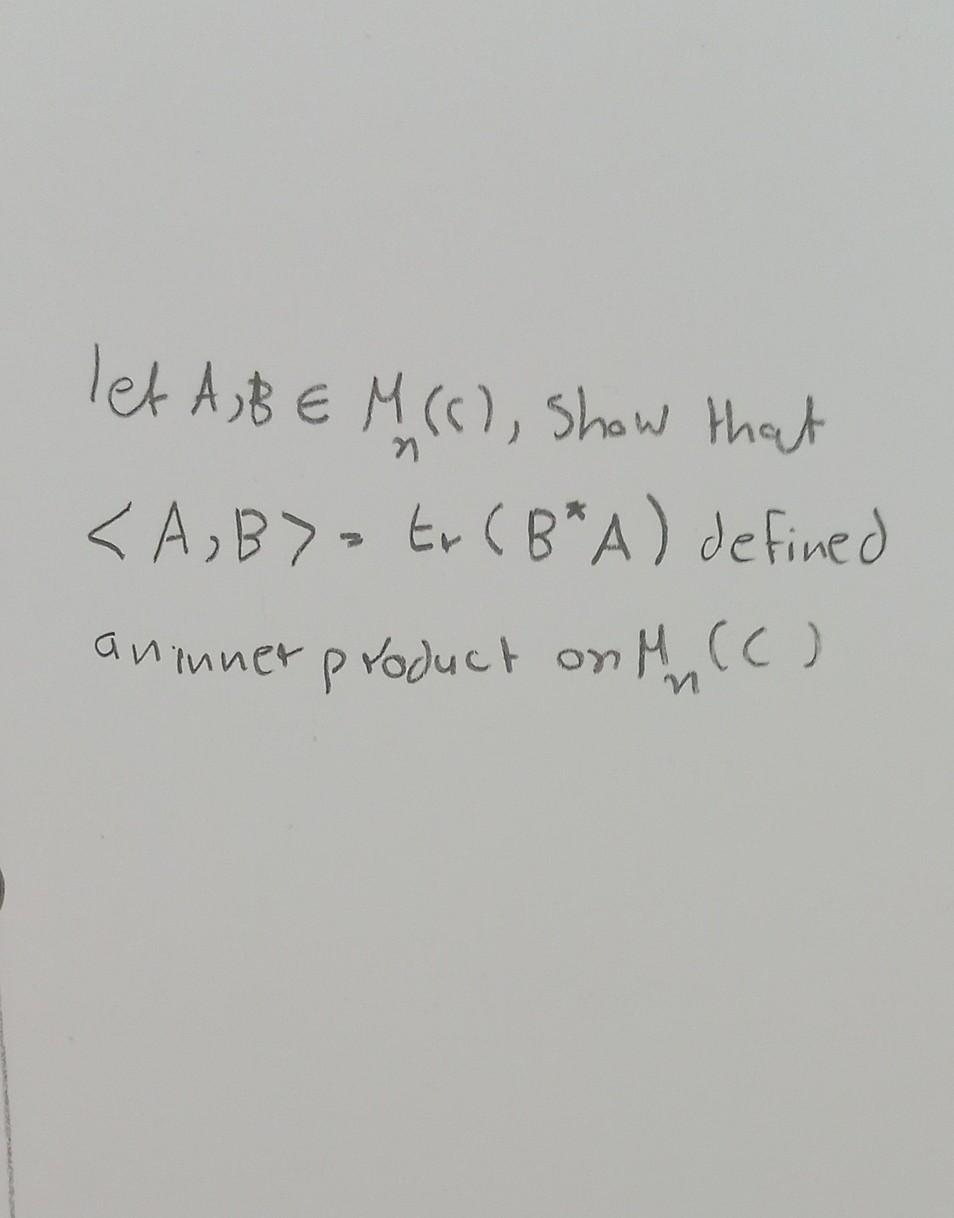 let A,B ∈ Mₙ(C), Show that
<A,B> = tr(B*A) defined
an inner product on Mₙ(C)